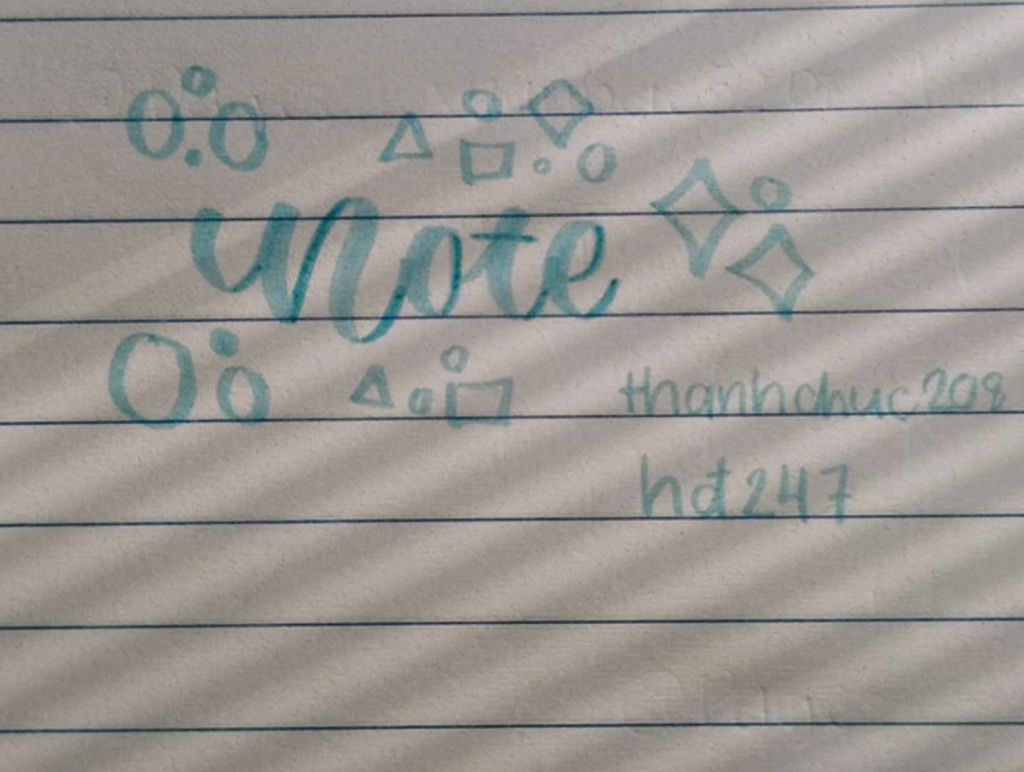 Note
thanhchuc208
hđ247